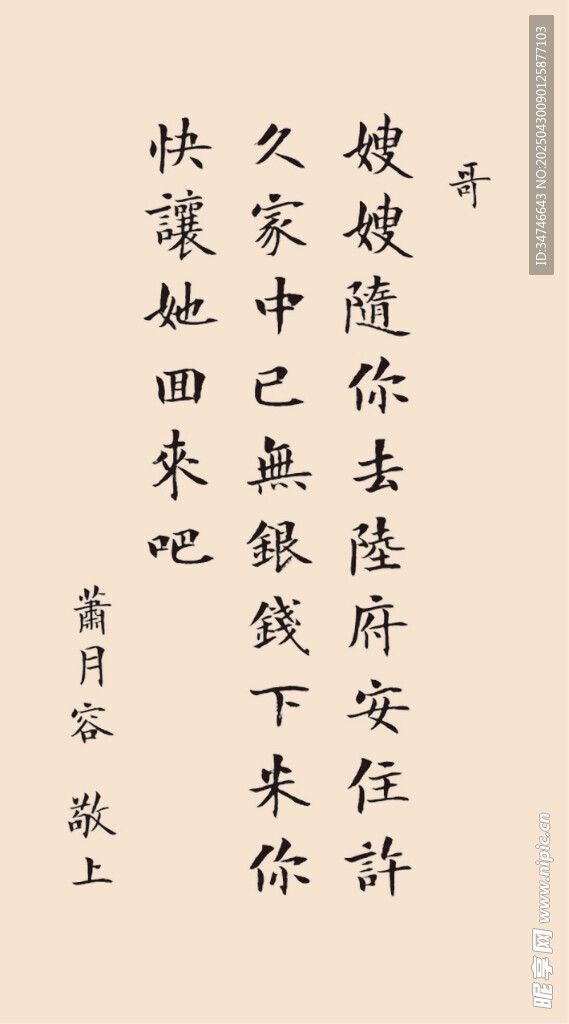 哥
嫂嫂隨你去陸府安住許
久家中已無銀錢下米你
快讓她回來吧
蕭月容 敬上
ID:34746643 NO:20250430090125877103
昵享网 www.nipic.cn